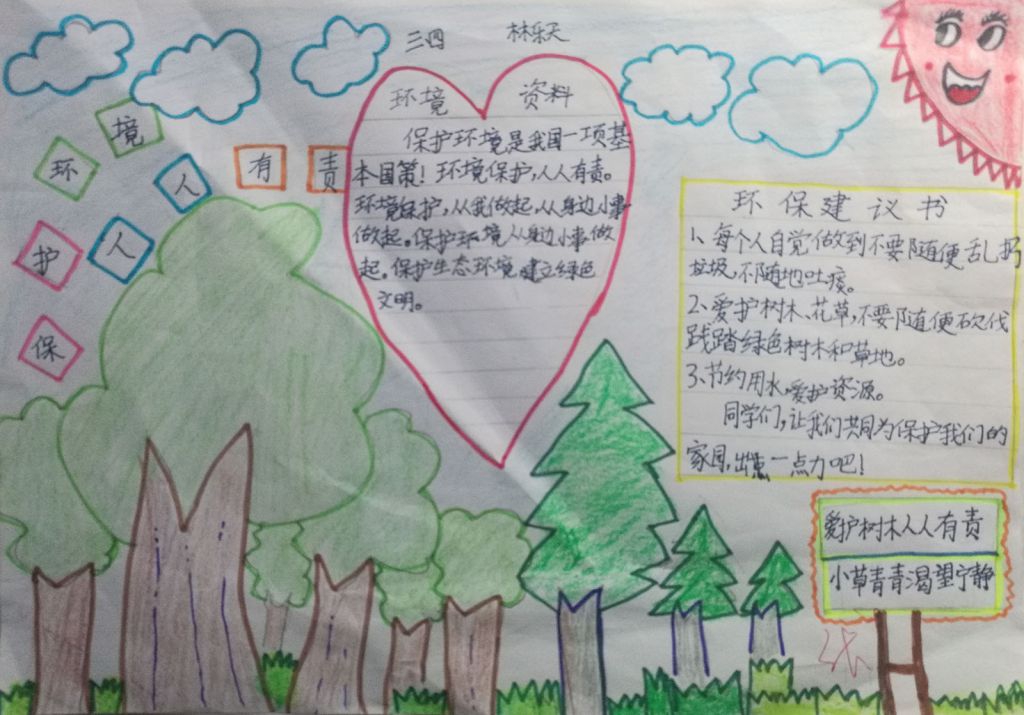 三四 林乐天
保护环境人人有责
环境 资料
保护环境是我国一项基
本国策！环境保护，人人有责。
环境保护，从我做起，从身边小事
做起。保护环境从身边小事做
起。保护生态环境，建立绿色
文明。
环保建议书
1、每个人自觉做到不要随便乱扔
垃圾，不随地吐痰。
2、爱护树木、花草，不要随便砍伐
践踏绿色树木和草地。
3、节约用水，爱护资源。
同学们，让我们共同为保护我们的
家园，出一点力吧！
爱护树木人人有责
小草青青渴望宁静